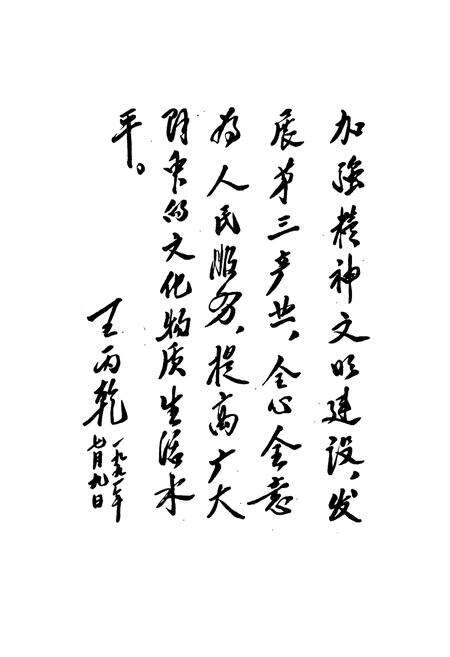 加强精神文明建设、发
展第三产业，全心全意
为人民服务、提高广大
群众的文化物质生活水
平。
王丙乾
一九九一年
七月九日